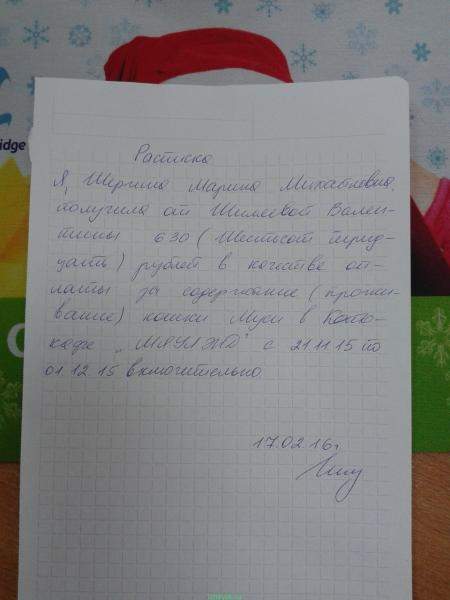 idge
Расписка
Я, Шергина Марина Михайловна,
получила от Шилеевой Вален-
тины 630 (Шестьсот тирид-
цать) рублей в качестве оп-
латы за содержание (прожи-
вание) кошки Муси в Кото-
кафе „МЯУЛЭНД" с 21.11.15 по
01.12.15 включительно.
17.02.16г.